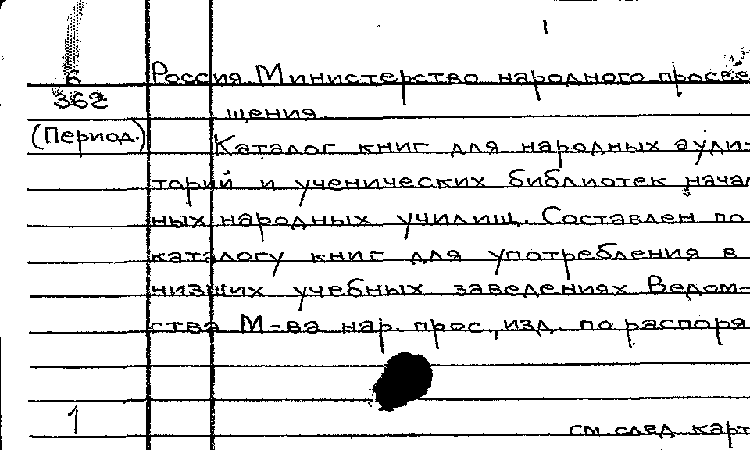 1
Б
Россия. Министерство народного просве
362
щения.
(Период.)
Каталог книг для народных ауди-
торий и ученических библиотек начал
ных народных училищ. Составлен по
каталогу книг для употребления в
низших учебных заведениях Ведом-
ства М-ва нар. прос., изд. по распоря
1
см. след. карт